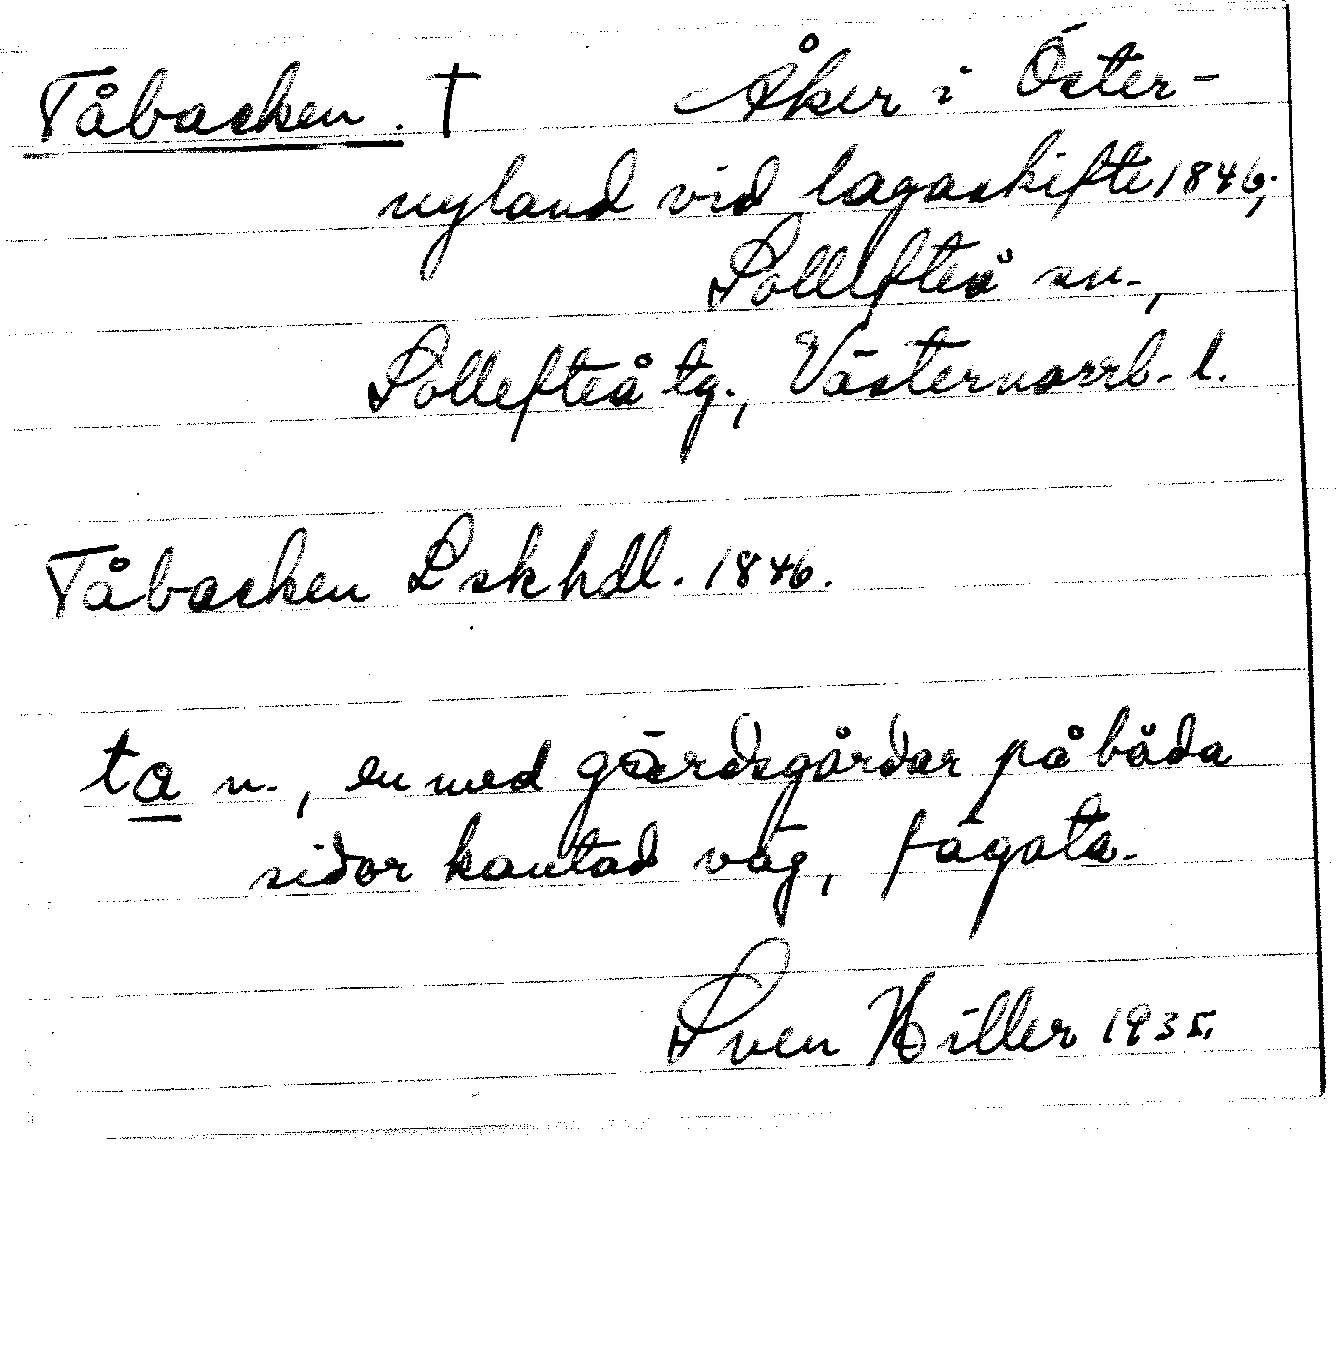 Tåbacken. † Åker i Öster-
nyland vid lagaskifte 1846;
Sollefteå sn.,
Sollefteå tg., Västernorrl. l.
Tåbacken Lskhdl. 1846.
ta n., en med gärdsgårdar på båda
sidor kantad väg, fägata.
Sven Hiller 1935.